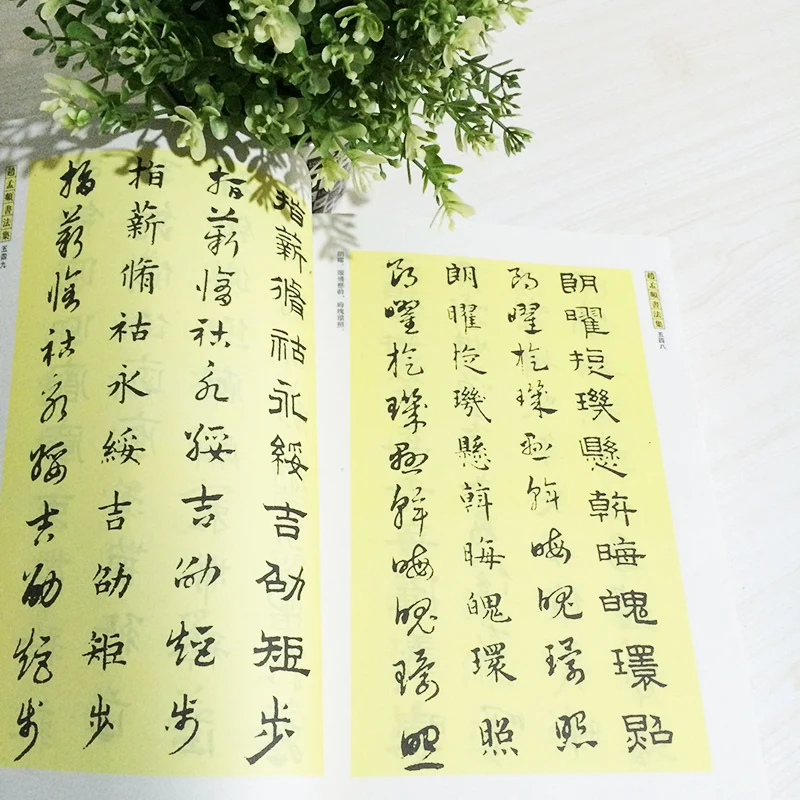 趙孟頫書法集
五四八
朗曜旋璣懸斡晦魄環照
朗曜旋璣懸斡晦魄環照
朗曜旋璣懸斡晦魄環照
朗曜旋璣懸斡晦魄環照
指薪脩祜永綏吉劭矩步
指薪脩祜永綏吉劭矩步
指薪脩祜永綏吉劭矩步
指薪脩祜永綏吉劭矩步
趙孟頫書法集
五四九